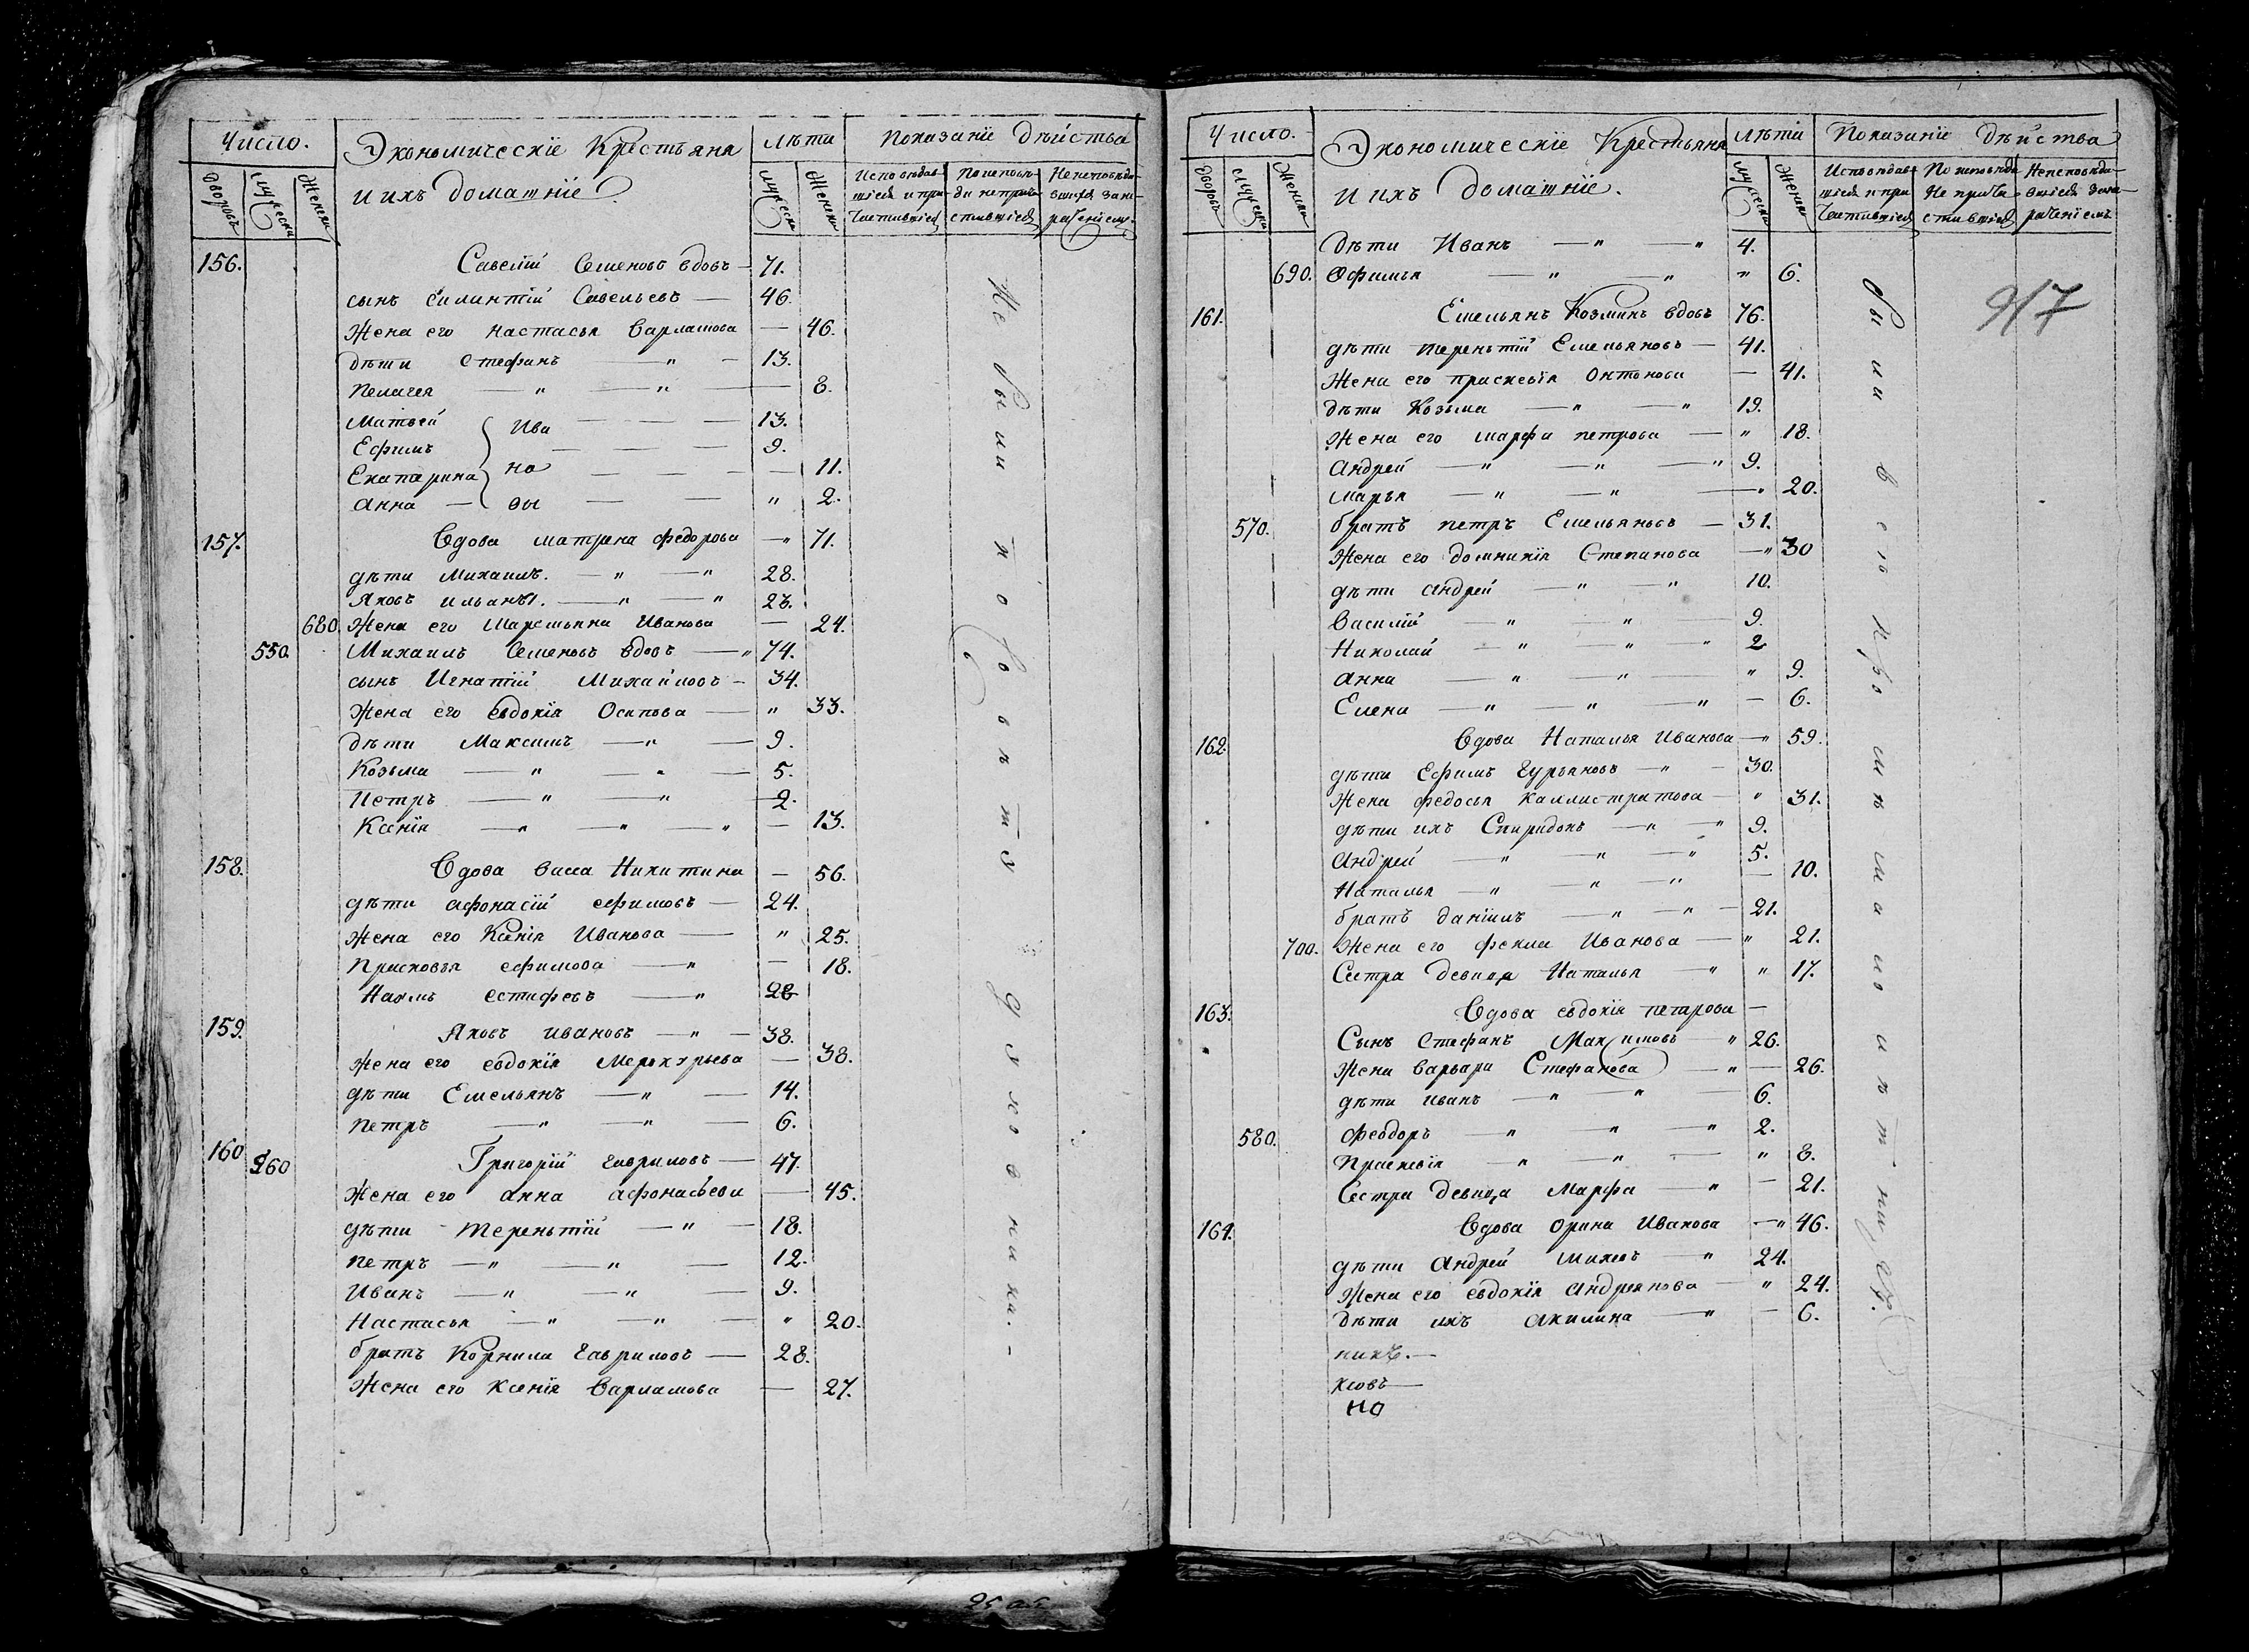 Число.
Экономическіе Крестьяна
Лѣта
Показаніе Дѣйства
и ихъ домашніе.
Дворовъ
Мужеска
Женска
Мужеска
Женска
Исповѣдав-
шіеся и при-
частившіеся
По исповѣ-
ди не приъ-
стившіеся
Неисповѣда
вшіеся за не-
раченіемъ.
156. Савелій Семеновъ вдовъ — 71.
сынъ Силантій Савельевъ — 46.
Жена его настасья Варламова — 46.
дѣти Стефанъ — " — 13.
Пелагея — " — " — 8.
Матвей — — — 13.
Ефимъ — — — 9.
Екатерина — — — — 11.
Анна — — — " 2.
Ива
но
вы
157. Вдова матрена федорова — " 71.
дѣти Михаилъ. — " — " 28.
Яковъ ильины. — " — " 23.
680. Жена его Маремьяна Иванова — 24.
550. Михаилъ Семеновъ вдовъ — " 74.
сынъ Игнатій Михайловъ — 34.
Жена его евдокія Осипова — " 33.
дѣти Максимъ — " — 9.
Козьма — " — " — 5.
Петръ — " — " — 2.
Ксенія — " — " — " — 13.
158. Вдова васса Никитина — 56.
дѣти афонасій ефимовъ — 24.
Жена его Ксенія Иванова — " 25.
Прасковья ефимова — " — 18.
Наумъ естифевъ — " 28
159. Яковъ ивановъ — " — 38.
Жена его евдокія Меркурьева — 38.
дѣти Емельянъ — " — 14.
Петръ — " — " — 6.
160 560 Григорій гавриловъ — 47.
Жена его анна афонасьева — 45.
дѣти Тереньтій — " — 18.
петръ — " — " — 12.
Иванъ — " — " — 9.
Настасья — " — " — " 20.
братъ Корнила гавриловъ — 28.
Жена его ксенія Варламова — 27.
Не были по
духовники.
Число.
Экономическіе Крестьяна
Лѣта
Показаніе Дѣйства
и ихъ домашніе.
Дворовъ
Мужеска
Женска
Мужеска
Женска
Исповѣдав
шіеся и при
частившіеся
По исповѣди
Не прича-
ставшіеся
Неисповѣда-
вшіеся за не-
раченіемъ
917
дѣти Иванъ — " — " 4.
690. Офимья — " — " " 6.
161. Емельянъ Козминъ вдовъ 76.
дѣти терентій Емельяновъ — 41.
Жена его праскевія Онтонова — 41.
дѣти Козьма — " — " 19.
Жена его марфа петрова — " 18.
Андрей — " — " — " 9.
марья — " — " — " 20.
570. братъ петръ Емельяновъ — 31.
Жена его домникія Степанова — " 30
дѣти андрей — " — " 10.
Василій — " — " — 9.
Николай — " — " — " 2
анна — " — " — " 9.
Елена — " — " — " — 6.
162. Вдова Наталья Иванова — " 59.
дѣти Ефимъ Гурьяновъ — " — 30.
Жена федосья каллистратова — " 31.
дѣти ихъ Спиридонъ — " — " 9.
Андрей — " — " — " 5.
Наталья — " — " — " — 10.
братъ даніилъ — " — " — 21.
700. Жена его фекла Иванова — " 21.
Сестра девица Наталья — " " 17.
163. Вдова евдокія петрова —
Сынъ Стефанъ Максимовъ — " 26.
Жена варвара Стефанова — " — 26.
дѣти иванъ — " — " — 6.
580. Феодоръ — " — " — " 2.
Праскевія — " — " — " 8.
Сестра девица Марфа — " — 21.
164. Вдова орина Иванова — " 46.
дѣти андрей михеевъ — " 24.
Жена его евдокія андреянова — " 24.
дѣти ихъ акилина — " — 6.
никъ. —
ковъ —
но